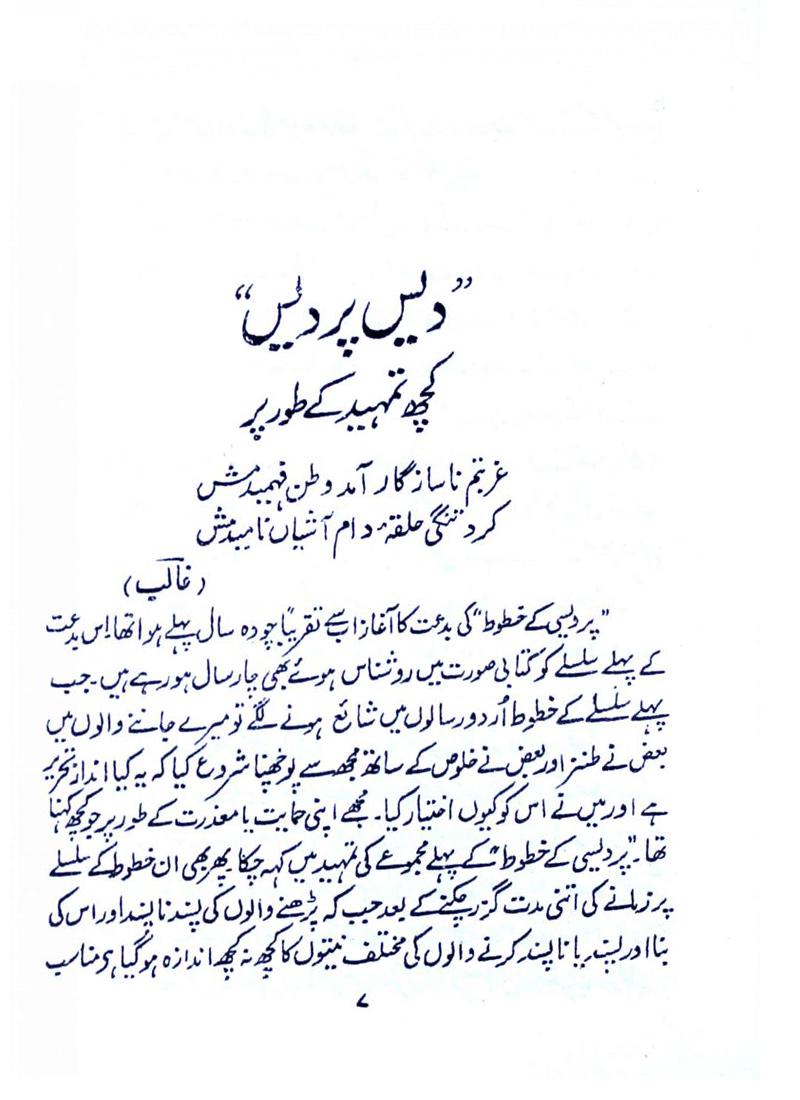 ”دیس پردیس“
کچھ تمہید کے طور پر
غربتم ناسازگار آمد وطن فہمیدمش
کرد تنگی حلقۂ دام آشیاں نامیدمش
(غالب)
”پردیسی کے خطوط“ کی بدعت کا آغاز اب سے تقریباً چودہ سال پہلے ہوا تھا۔ اس بدعت
کے پہلے سلسلے کو کتابی صورت میں روشناس ہوئے بھی چار سال ہو رہے ہیں۔ جب
پہلے سلسلے کے خطوط اُردو رسالوں میں شائع ہونے لگے تو میرے جاننے والوں میں
بعض نے طنز اور بعض نے خلوص کے ساتھ مجھ سے پوچھنا شروع کیا کہ یہ کیا انداز تحریر
ہے اور میں نے اس کو کیوں اختیار کیا۔ مجھے اپنی حمایت یا معذرت کے طور پر جو کچھ کہنا
تھا۔ ”پردیسی کے خطوط“ کے پہلے مجموعے کی تمہید میں کہہ چکا پھر بھی ان خطوط کے سلسلے
پر زمانے کی اتنی مدت گزر چکنے کے بعد جب کہ پڑھنے والوں کی پسند ناپسند اور اس کی
بنا اور پسند یا ناپسند کرنے والوں کی مختلف نیتوں کا کچھ نہ کچھ اندازہ ہو گیا ہے مناسب
۷